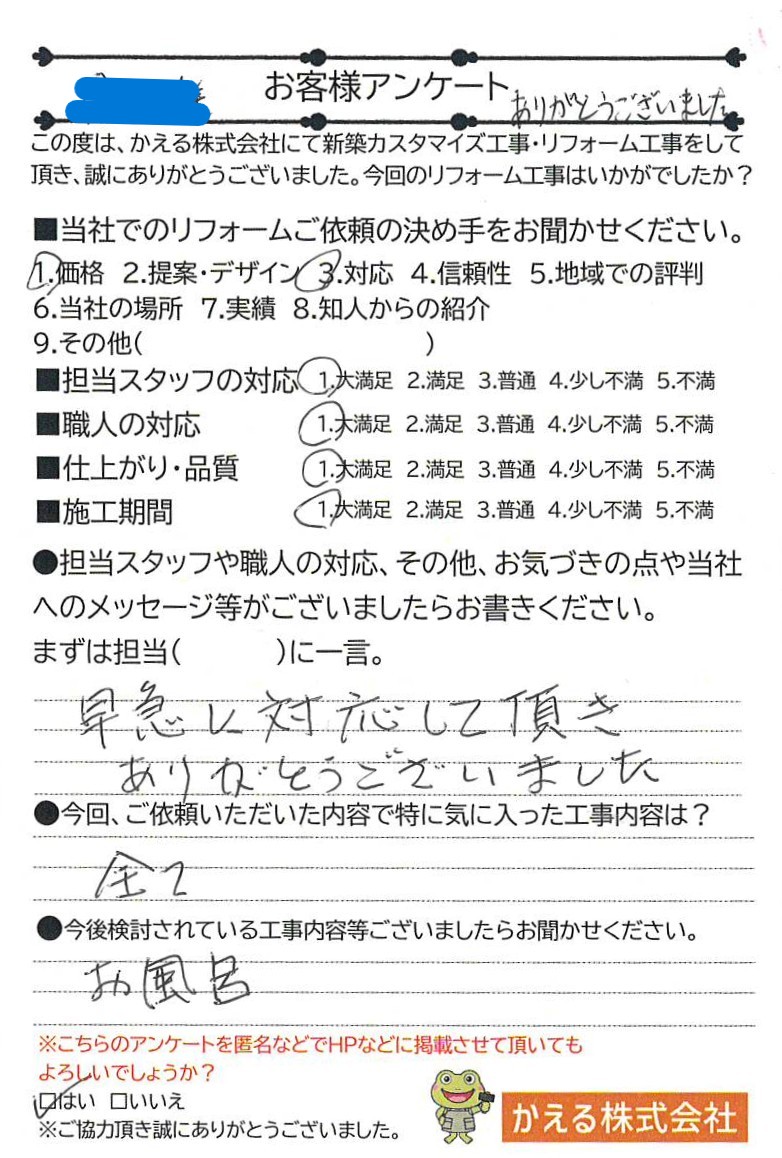 お客様アンケート
ありがとうございました
この度は、かえる株式会社にて新築カスタマイズ工事・リフォーム工事をして
頂き、誠にありがとうございました。今回のリフォーム工事はいかがでしたか？
■当社でのリフォームご依頼の決め手をお聞かせください。
1.価格 2.提案・デザイン 3.対応 4.信頼性 5.地域での評判
6.当社の場所 7.実績 8.知人からの紹介
9.その他( )
■担当スタッフの対応 1.大満足 2.満足 3.普通 4.少し不満 5.不満
■職人の対応 1.大満足 2.満足 3.普通 4.少し不満 5.不満
■仕上がり・品質 1.大満足 2.満足 3.普通 4.少し不満 5.不満
■施工期間 1.大満足 2.満足 3.普通 4.少し不満 5.不満
●担当スタッフや職人の対応、その他、お気づきの点や当社
へのメッセージ等がございましたらお書きください。
まずは担当( )に一言。
早急に対応して頂き
ありがとうございました
●今回、ご依頼いただいた内容で特に気に入った工事内容は？
全て
●今後検討されている工事内容等ございましたらお聞かせください。
お風呂
※こちらのアンケートを匿名などでHPなどに掲載させて頂いても
よろしいでしょうか？
☑はい □いいえ
※ご協力頂き誠にありがとうございました。
かえる株式会社